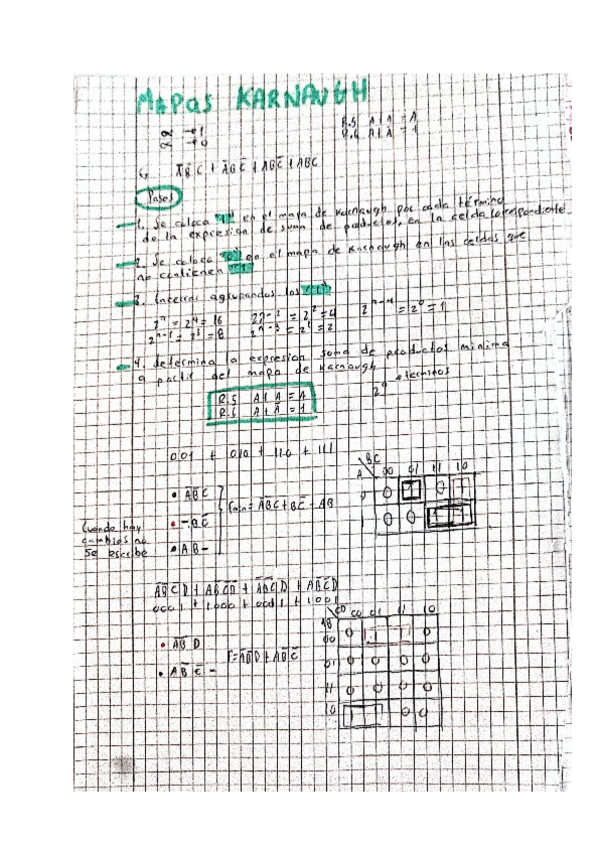 MAPAS KARNAUGH
R.5 A+A = A
R.6 A+Ā = 1
ĀB̄C + ĀBC̄ + ABC̄ + ABC
Pasos
1. Se coloca "1" en el mapa de Karnaugh por cada término
de la expresion de suma de productos, en la celda correspondiente
2. Se coloca "0" en el mapa de Karnaugh en las celdas que
no contienen "1"
3. Encerrar agrupandos los "1"
2ⁿ = 2⁴ = 16 2ⁿ⁻² = 2² = 4 2ⁿ⁻⁴ = 2⁰ = 1
2ⁿ⁻¹ = 2³ = 8 2ⁿ⁻³ = 2¹ = 2
4. determina la expresion suma de productos minima
a partir del mapa de Karnaugh
terminos
R.5 A+A = A
R.6 A+Ā = 1
001 + 010 + 110 + 111
BC
A 00 01 11 10
0 0 1 0 1
1 0 0 1 1
• ĀB̄C
• -BC̄
• AB-
= ĀB̄C + BC̄ + AB
Cuando hay
cambios no
se escribe
ĀB̄C̄D + AB̄C̄D̄ + ĀB̄CD + AB̄C̄D
0001 + 1000 + 0011 + 1001
CD 00 01 11 10
AB
00 0 1 1 0
01 0 0 0 0
11 0 0 0 0
10 1 1 0 0
• ĀB̄D
• AB̄C̄-
F = ĀB̄D + AB̄C̄